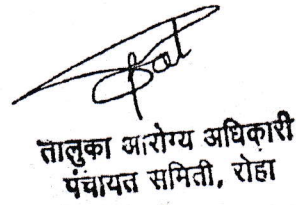 तालुका आरोग्य अधिकारी
पंचायत समिती, रोहा